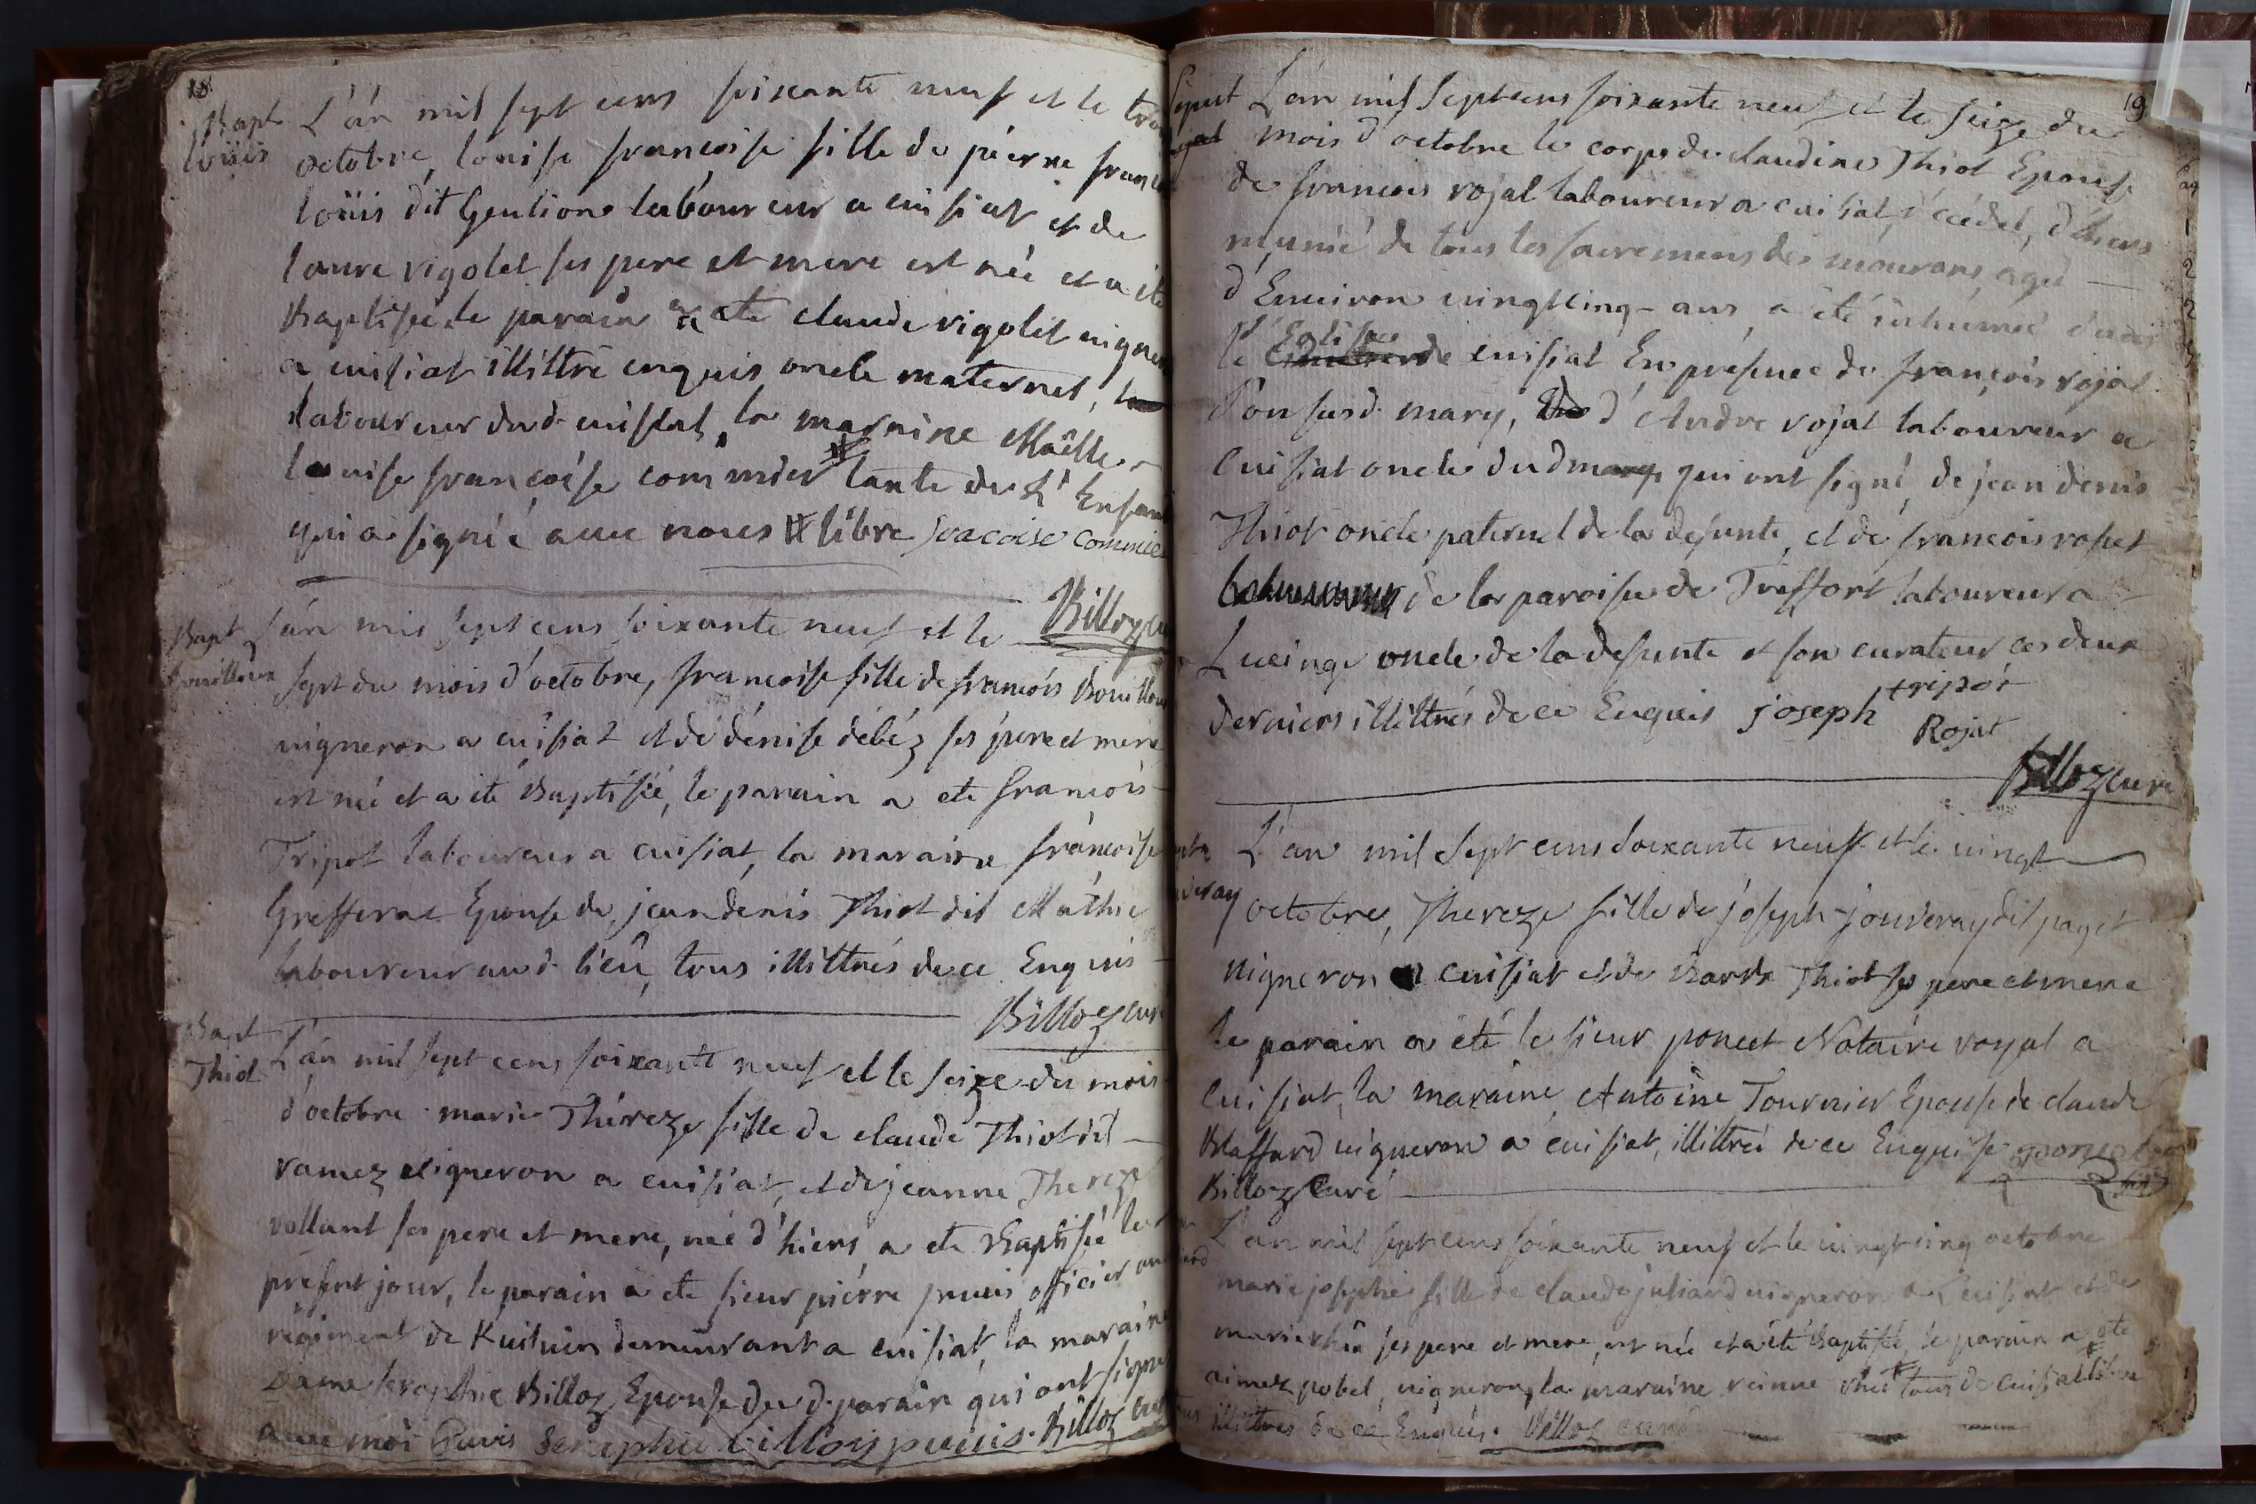 18
Bapt L'án mil sept cens soixante neuf et le
loüis octobre, louise françoise fille de piérre
loüis dit Gentione labóureur a cuisiat et de
laure vigolet ses pere et mere est née et a été
Baptisée, le parain a ete claude vigolet vigneron
a cuisiat illittré enquis oncle maternel,
laboureur dud. cuisiat, la maraine
louise françoise commier tante de L'Enfant
qui a signéé avec nous libre fracoise commier
Billoz curé
Bapt L'án mil sept cens soixante neuf et le
Bouilloux sept du mois d'octobre, francoise fille de françois Bouilloux
vigneron a cuisiat et de dénise débéz ses pére et mere
est néé et a été Baptiséé, le parain a ete françois
Tripot laboureur a cuisiat, la maraine françoise
Grefferat Epouse de jean denis Thiot dit Mathie
laboureur aud. lieû, tous illittrés de ce Enquis
Billoz curé
Bapt
Thiot L'án mil sept cens soixante neuf et le seize du mois
d'octobre marie Thérèze fille de claude Thiot dit
ramez vigneron a cuisiat, et de jeanne Thereze
vollant ses pere et mere, néé d'hiers a ete Baptiséé le
présent jour, le parain a ete sieur piérre puvis officier au
régiment de demeurant a cuisiat, la maraine
Dame seraphie Billoz Epouse du d. parain qui ont signé
avec moi Puvis Seraphie billoz puvis. Billoz curé
19
Sepult L'án mil Sept cens soixante neuf et le seize du
rojat mois d'octobre le corps de claudine Thiot Epouse
de françois rojat laboureur a cuisiat, décédée, d'hiers
munié de tous les sacremens des mourans, agéé
d'Enuiron vingt cinq ans, a été inhumée dans
l'Eglise de cuisiat En présence de françois rojat
son susd. mary, d'Andre rojat laboureur a
Cuisiat oncle dud mary qui ont signé, de jean denis
Thiot oncle paternel de la défunte, et de françois
de la paroisse de Treffort laboureur a
Lucinge oncle de la defunte et son curateur, ces deux
derniers illittrés de ce Enquis joseph tripot
Rojat
Billoz curé
L'an mil Sept cens Soixante neuf et le vingt
octobre, Thereze fille de jóseph jouveray dit paget
vigneron a cuisiat et de Barbe Thiot ses pere et mere
le parain a été le sieur poncet Notaire royal a
Cuisiat, la maraine, Antoine Tournier Epouse de claude
Blaffard vigneron a cuisiat, illittréé de ce Enquise poncet
Billoz Curé
L'an mil sept cens soixante neuf et le vingt cinq octobre
marie josephe fille de claude juliard vigneron a Cuisiat et de
marie ses pere et mere, est née et a été Baptiséé, le parain a ete
aimez pobel, vigneron, la maraine reinne tous de cuisiat
illittrés de ce Enquis. Billoz curé